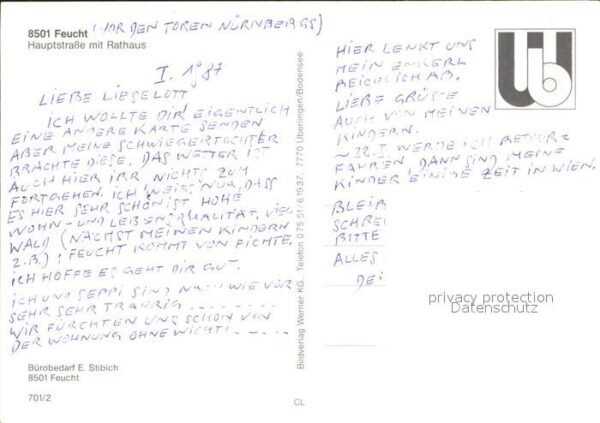 8501 Feucht (VOR DEN TOREN NÜRNBERGS)
Hauptstraße mit Rathaus
I. 1° 87
LIEBE LIESELOTT!
ICH WOLLTE DIR EIGENTLICH
EINE ANDERE KARTE SENDEN
ABER MEINE SCHWIEGERTOCHTER
BRACHTE DIESE. DAS WETTER IST
AUCH HIER IRR NICHTS ZUM
FORTGEHEN. ICH WEISS NUR, DASS
ES HIER SEHR SCHÖN IST HOHE
WOHN- UND LEBENSQUALITÄT, VIEL
WALD (NÄCHST MEINEN KINDERN
Z.B.)! FEUCHT KOMMT VON FICHTE.
ICH HOFFE ES GEHT DIR GUT.
ICH UND SEPPI SIND NACH WIE VOR
SEHR SEHR TRAURIG
WIR FÜRCHTEN UNS SCHON VON
DER WOHNUNG OHNE WICHTI
Bürobedarf E. Stibich
8501 Feucht
701/2
CL
Bildverlag Werner KG., Telefon 0 75 51/6 19 37, 7770 Überlingen/Bodensee
HIER LENKT UNS
MEIN ENKERL
REICHLICH AB.
LIEBE GRÜSSE
AUCH VON MEINEN
KINDERN.
~ 22. I WERDE ICH RETOUR
FAHREN DANN SIND MEINE
KINDER EINIGE ZEIT IN WIEN.
BLEIB
SCHREI
BITTE
ALLES
DEI
privacy protection
Datenschutz